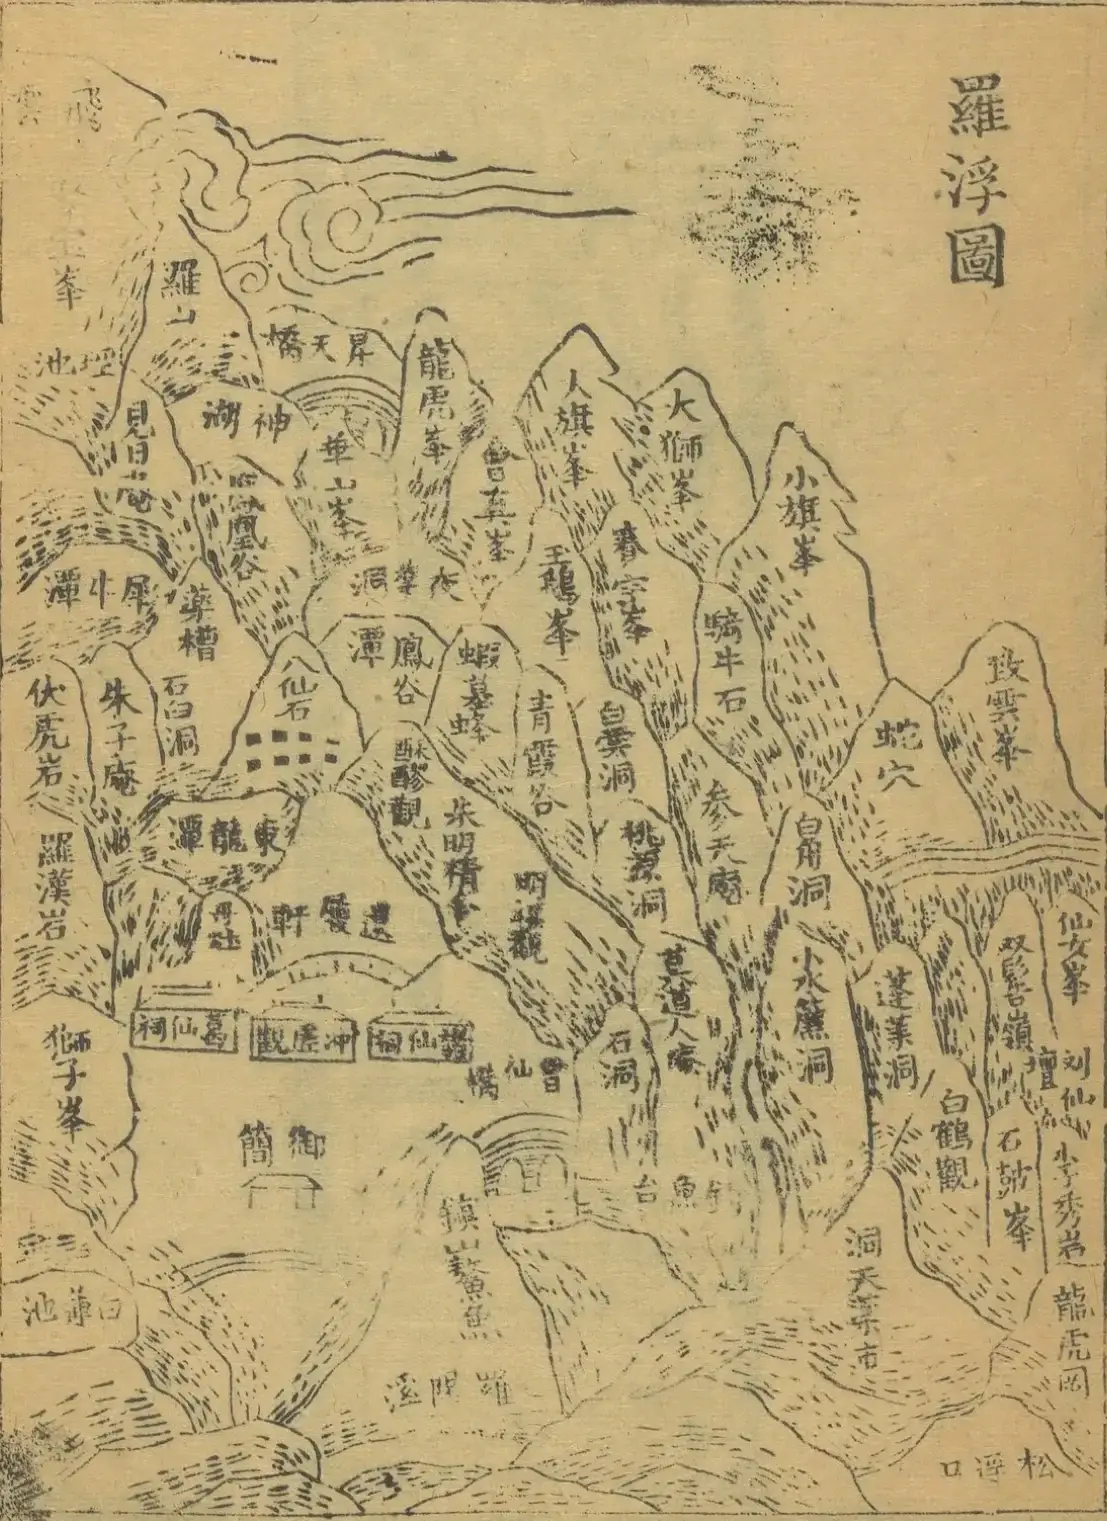 羅浮圖
飛雲
峯
羅山
昇天橋
龍虎峯
人旗峯
大獅峯
小旗峯
神湖
見日庵
鳳凰谷
華山峯
會真峯
玉鵝峯
騎牛石
夜樂洞
犀牛潭
藥槽
鳳谷
潭
蝦蟇峰
青霞谷
白雲洞
蛇穴
伏虎岩
朱子庵
石臼洞
八仙石
酥醪觀
朱明
參天庵
桃源洞
東龍潭
羅漢岩
遺履軒
丹灶
仙女峯
双髻嶺
小水簾洞
蓬萊洞
葛仙祠
冲虛觀
諸仙祠
會仙橋
石洞
獅子峯
劉仙壇
白鶴觀
石鼓峯
御簡
釣魚台
鎮山鰲魚
洞天藥市
龍虎岡
白蓮池
羅陽溪
松浮口